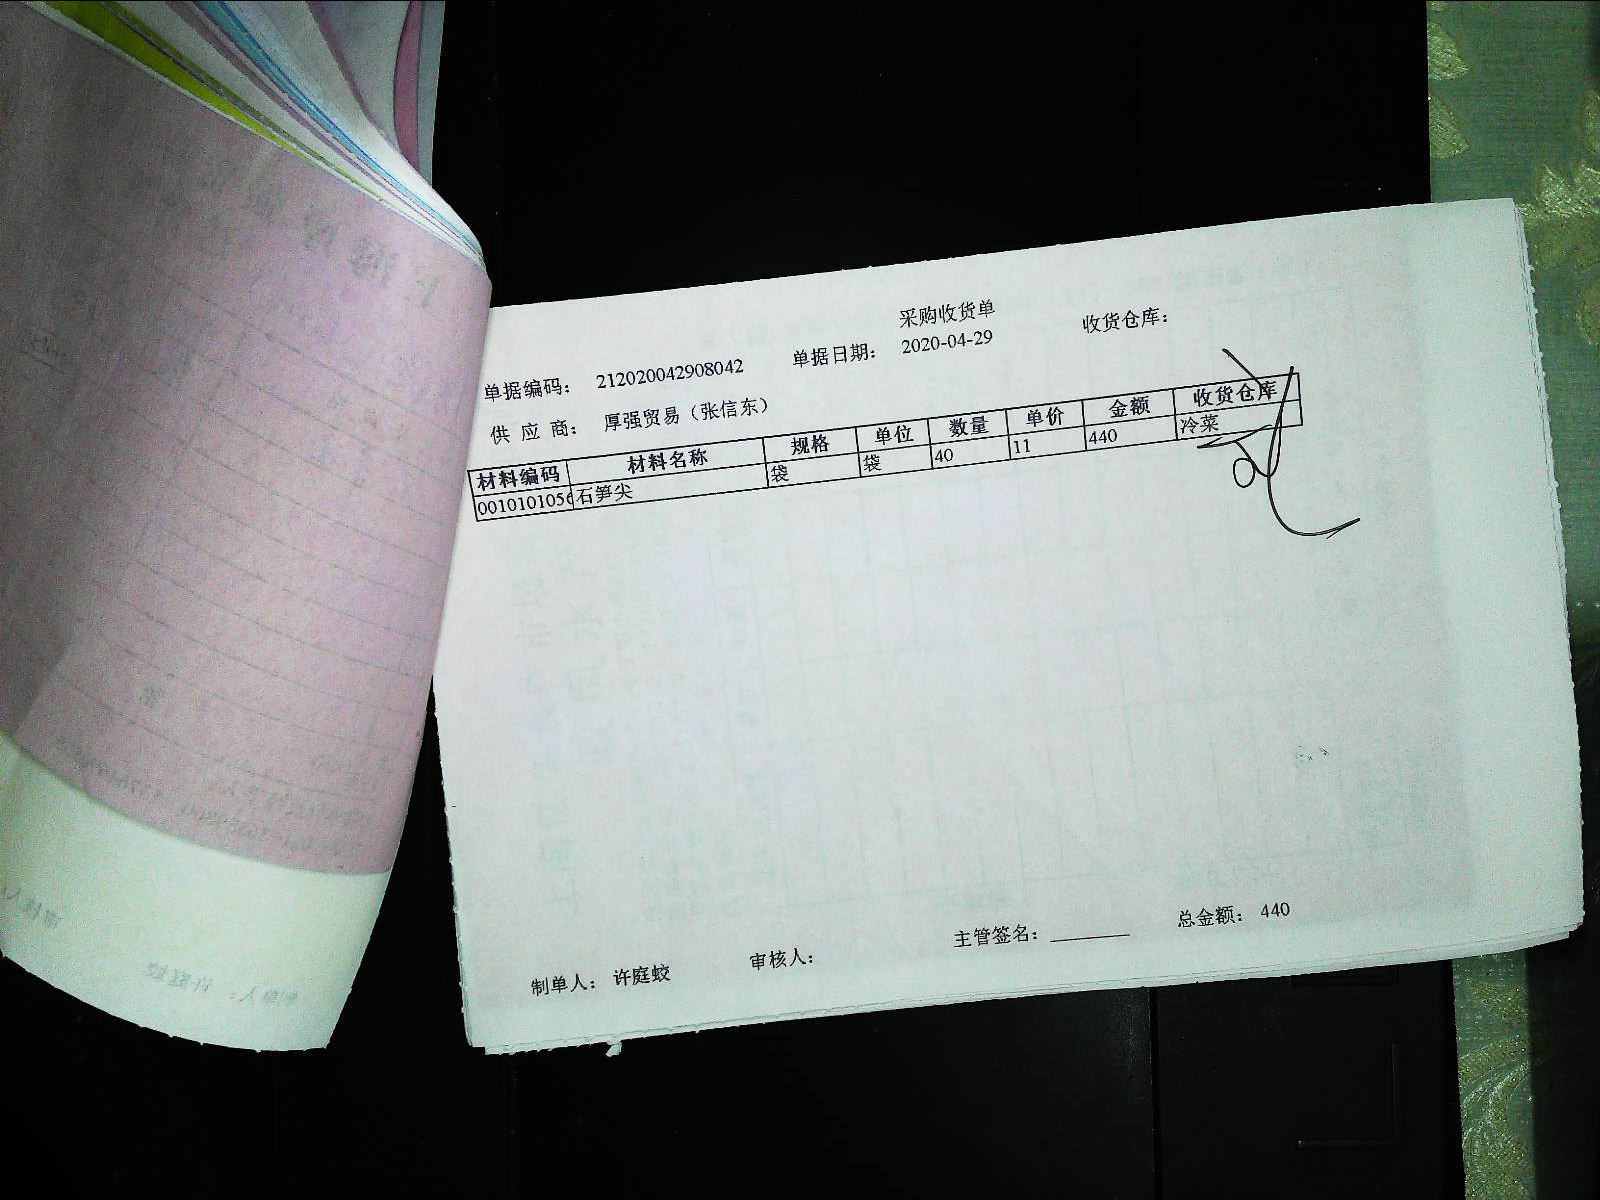 采购收货单
单据编码： 212020042908042 单据日期： 2020-04-29 收货仓库：
供 应 商： 厚强贸易（张信东）
材料编码 材料名称 规格 单位 数量 单价 金额 收货仓库
0010101056 石笋尖 袋 袋 40 11 440 冷菜
制单人： 许庭蛟 审核人： 主管签名：________ 总金额： 440